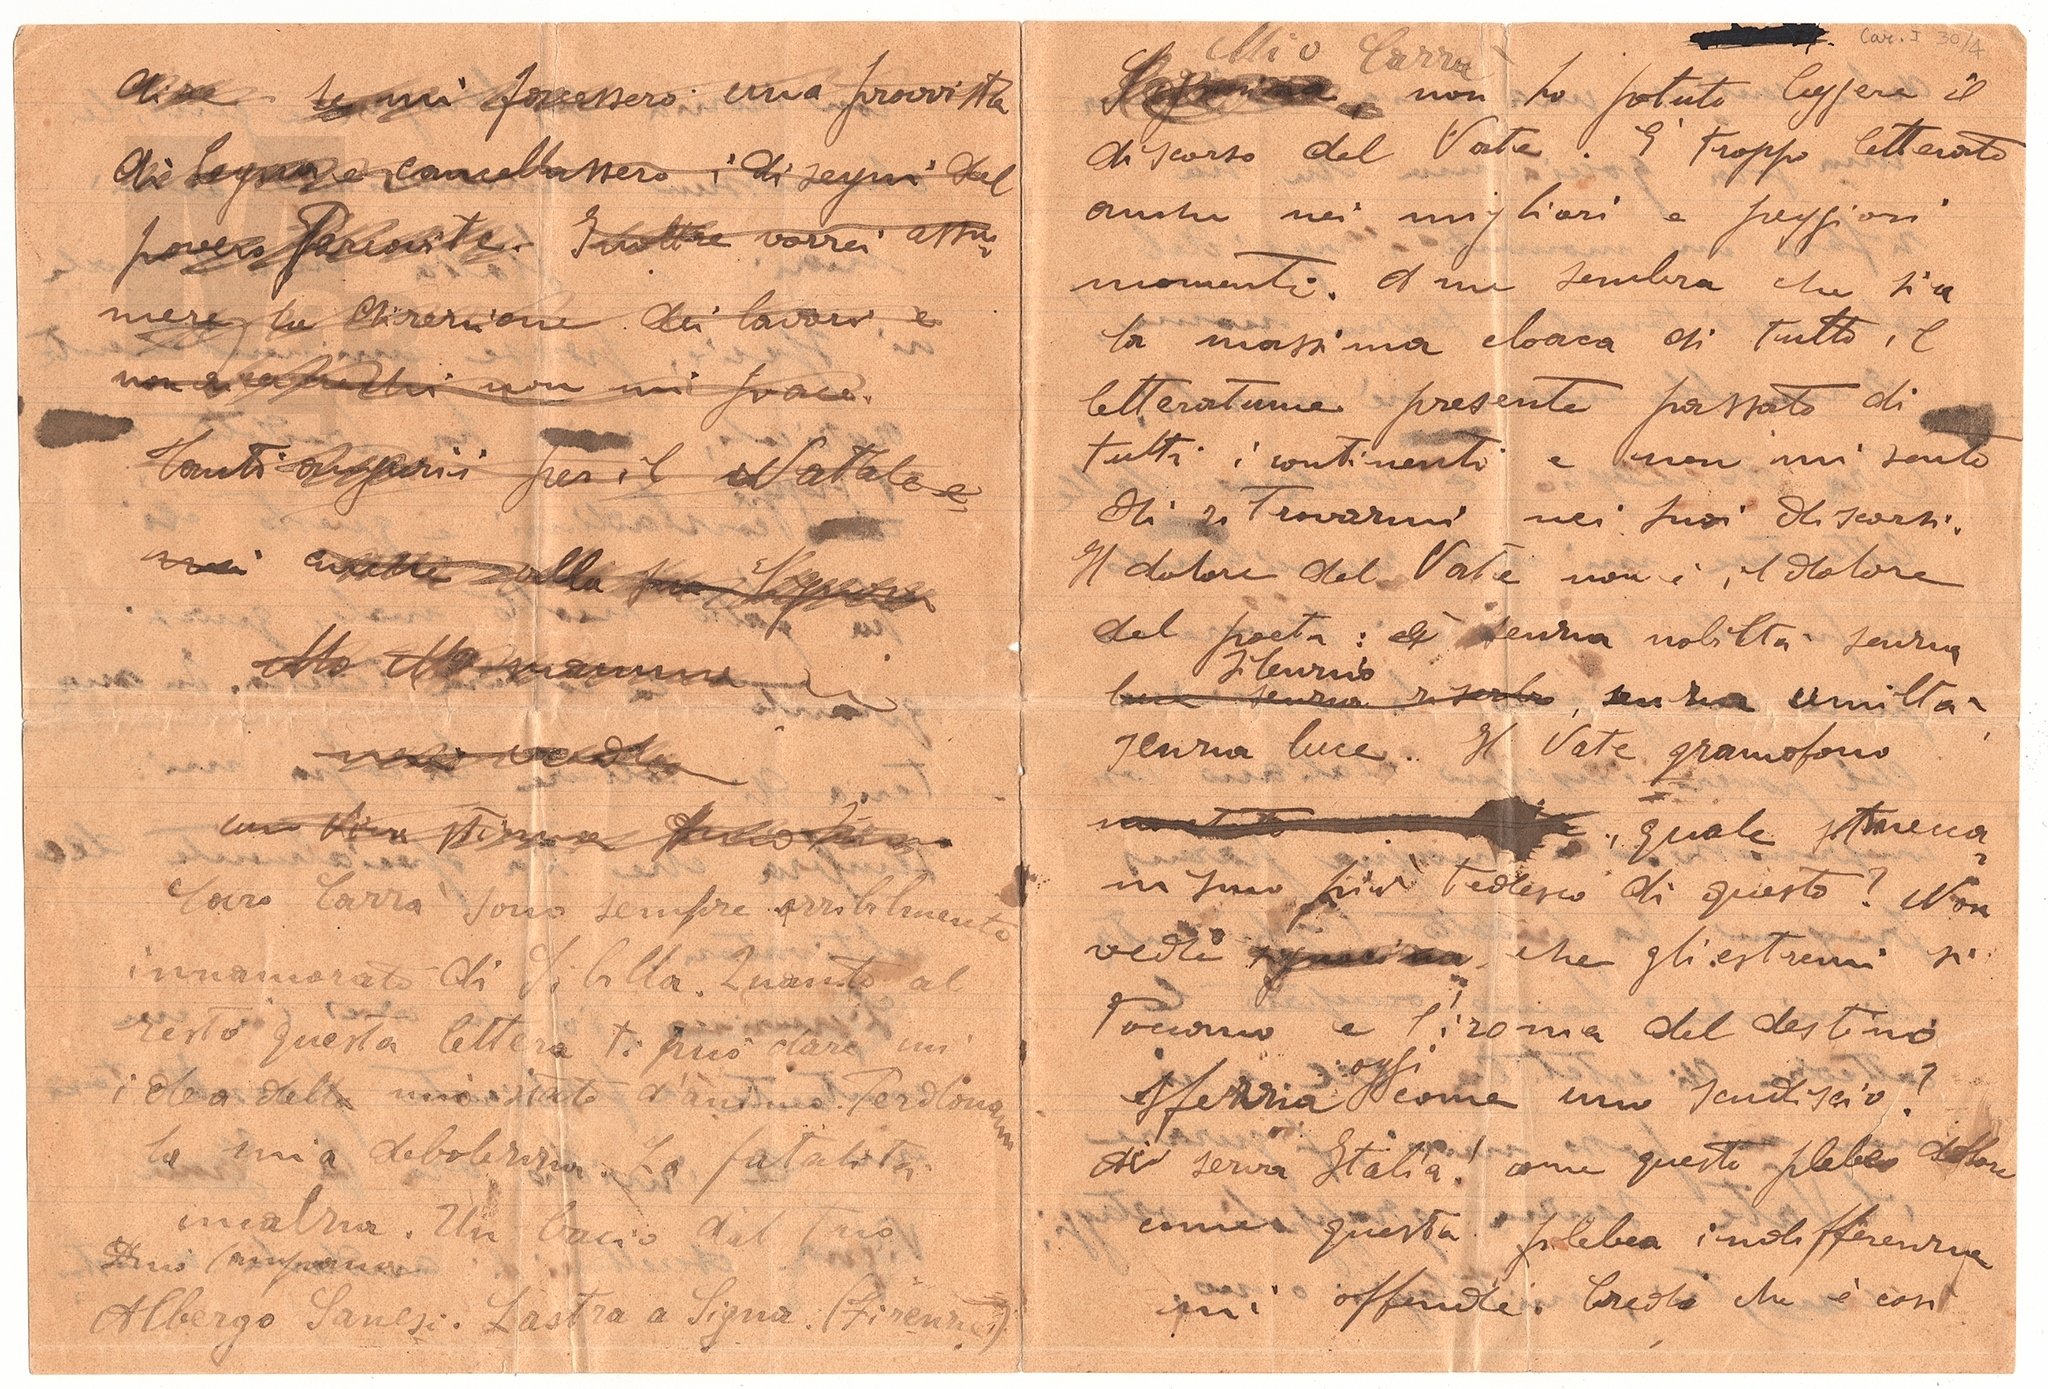 Car. I 30/4
Mio Carrà
non ho potuto leggere il
discorso del Vate. È troppo letterato
anche nei migliori e peggiori
momenti. A me sembra che sia
la massima cloaca di tutto il
letteratume presente passato di
tutti i continenti e non mi sento
di ritrovarmi nei suoi discorsi.
Il dolore del Vate non è il dolore
del poeta: è senza nobiltà senza
silenzio
luce senza, senza umiltà,
senza luce. Il Vate gramofono
, quale
più tedesco di questo? Non
vedi che gli estremi si
toccano e l'ironia del destino
oggi
sferza come uno scudiscio?
Ahi serva Italia! come questo plebeo dolore
come questa plebea indifferenza
mi offende. Credo che è così
dire se mi facessero una provvista
di legna e cancellassero i disegni del
povero. Inoltre vorrei assu
mere la direzione dei lavori e
non mi piace.
Tanti auguri per il Natale e
anche alla sua Signora
con viva stima
Caro Carrà sono sempre orribilmente
innamorato di Sibilla. Quanto al
resto questa lettera ti può dare un'
idea dello mio stato d'animo. Perdonami
la mia debolezza. La fatalità
m'alza. Un bacio dal tuo
Dino Campana
Albergo Sanesi. Lastra a Signa. (Firenze)